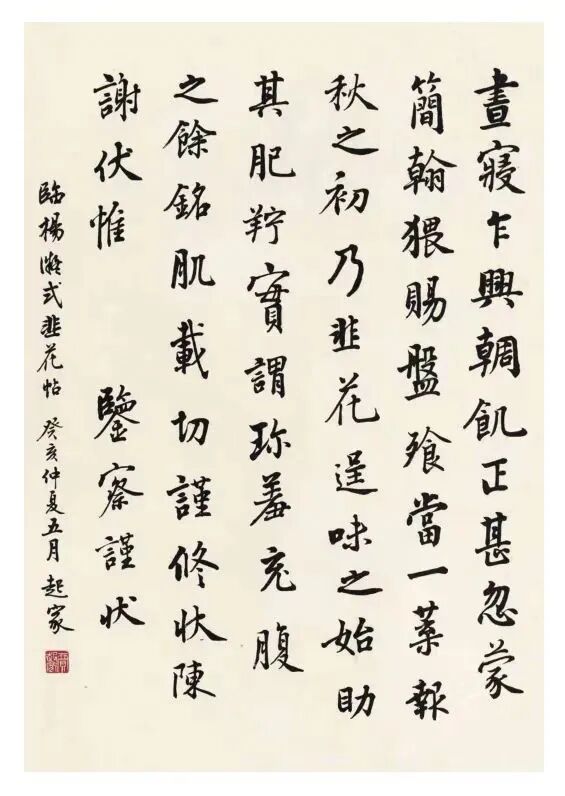 晝寢乍興輖飢正甚忽蒙
簡翰猥賜盤飧當一葉報
秋之初乃韭花逞味之始助
其肥羜實謂珍羞充腹
之餘銘肌載切謹修狀陳
謝伏惟 鑒察謹狀
臨楊凝式韭花帖 癸亥仲夏五月 起家